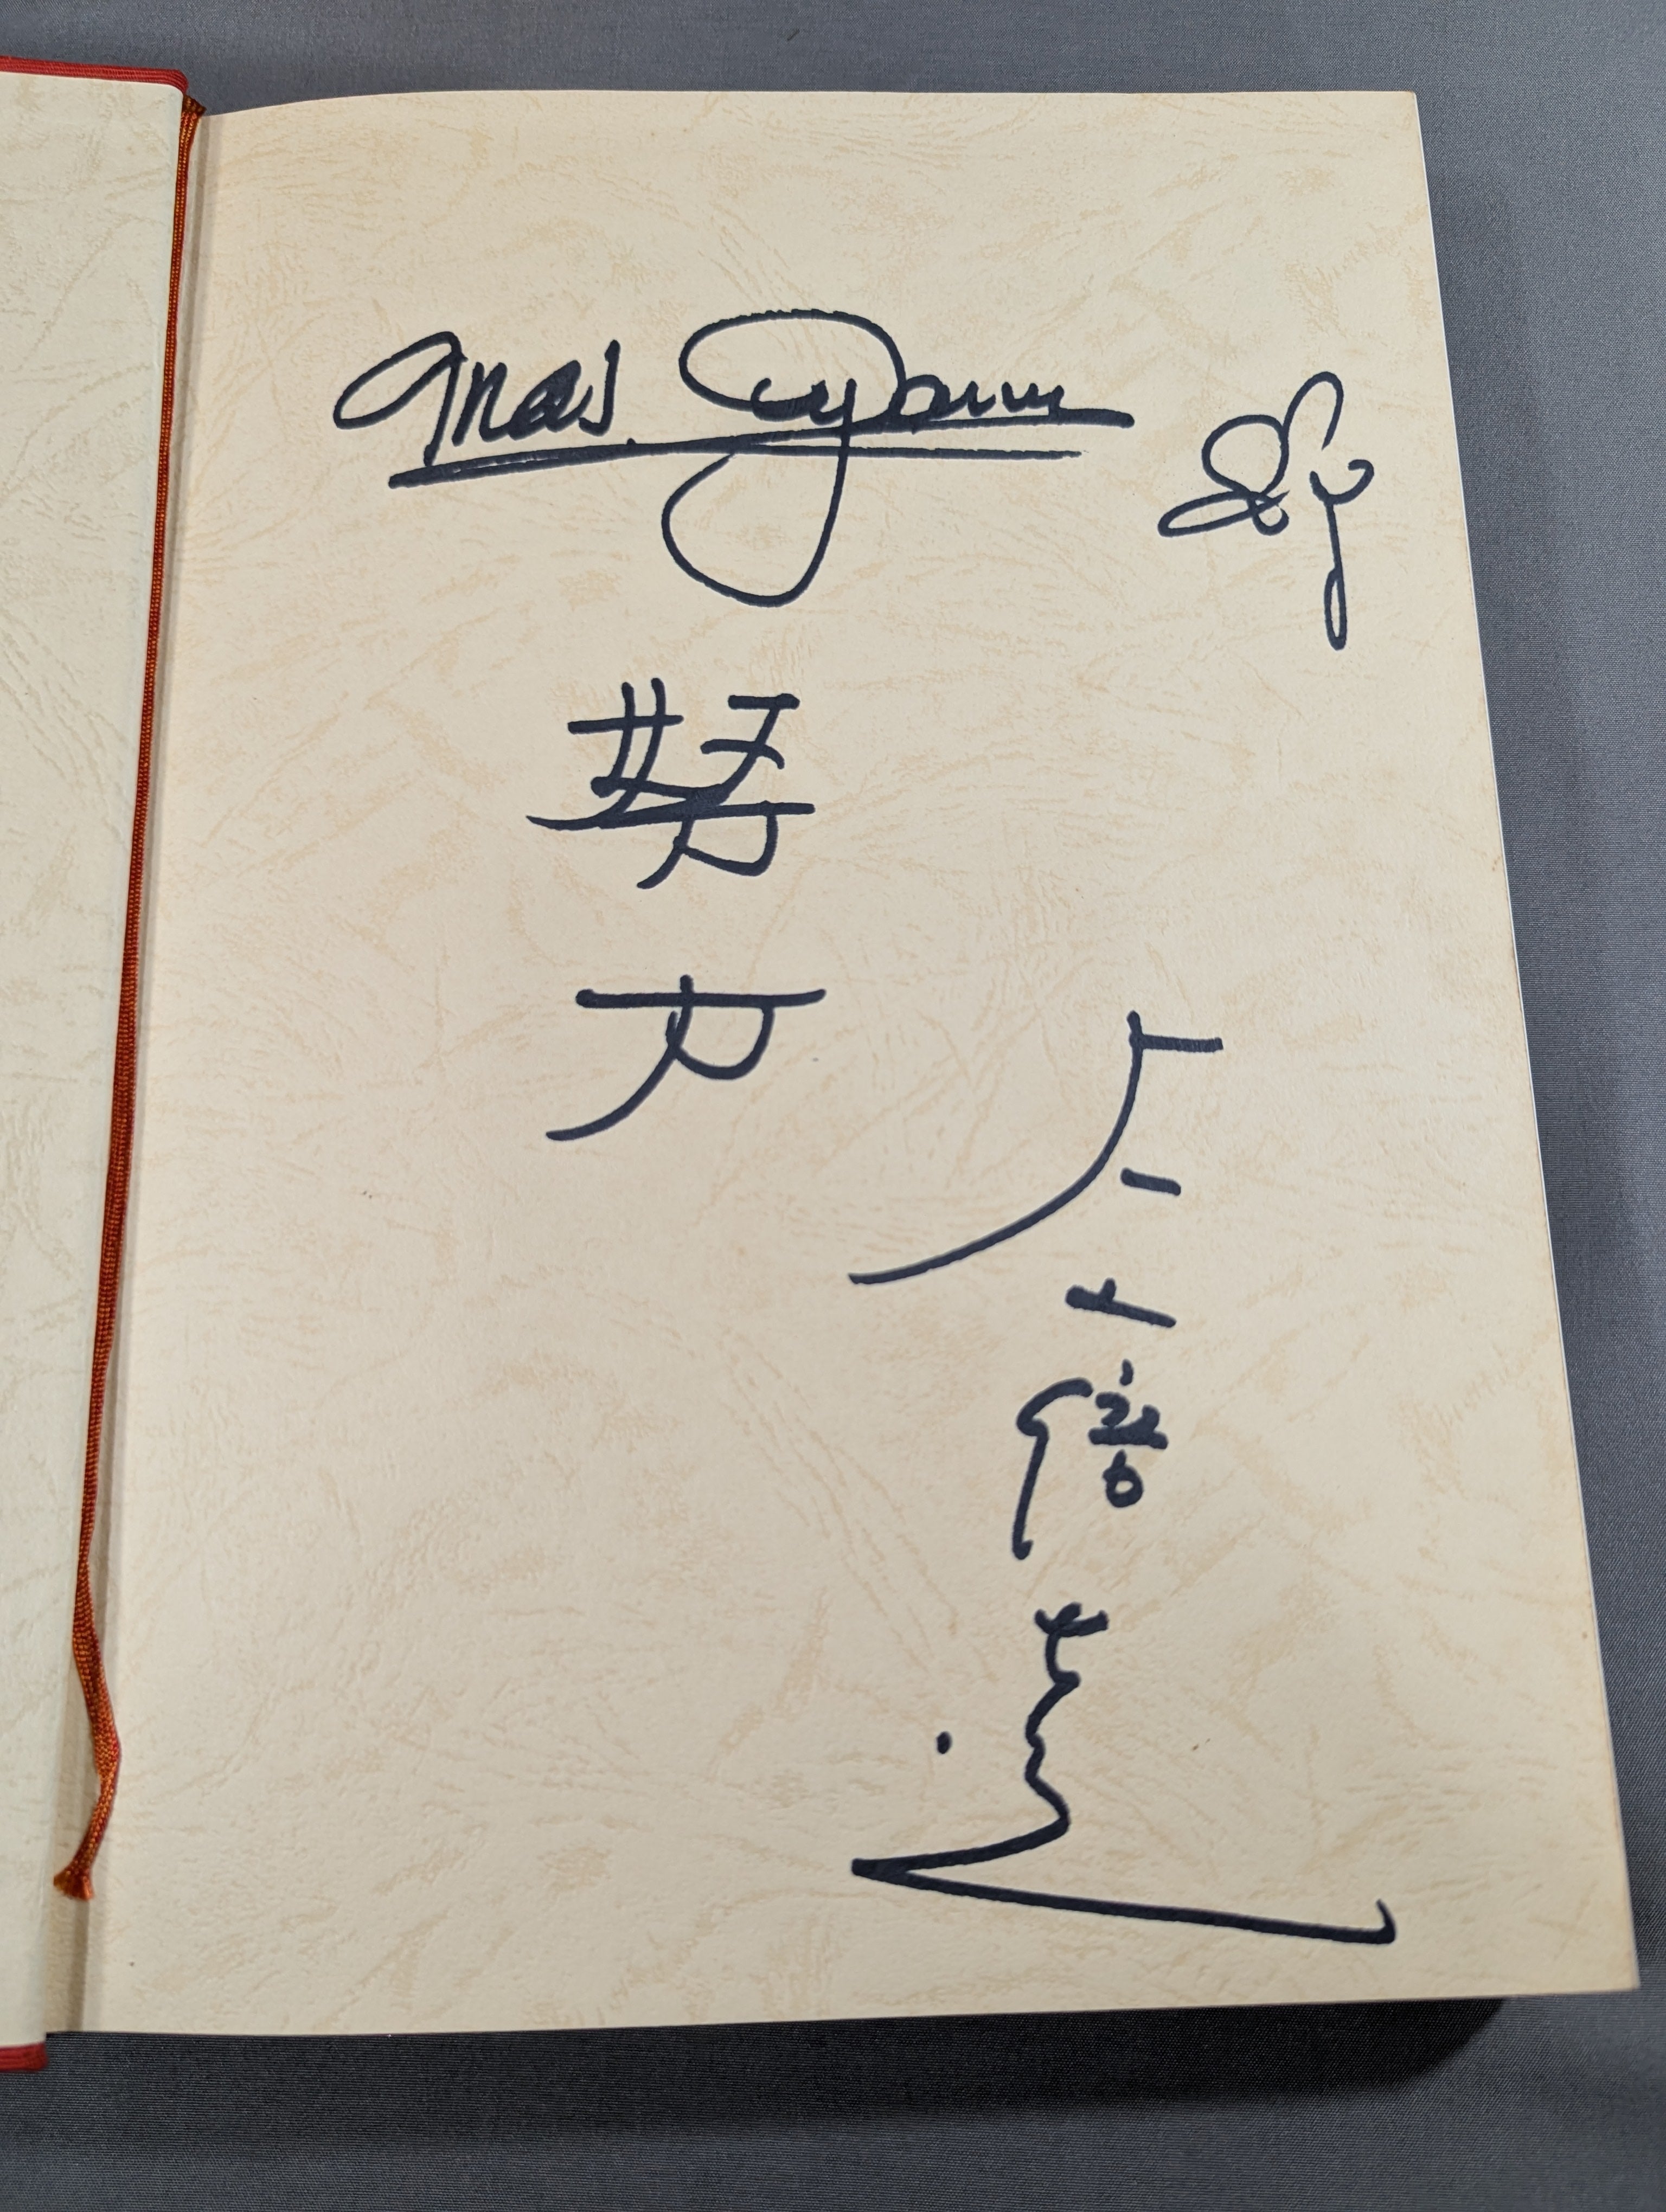 Mas. Oyama
努力
大山倍達